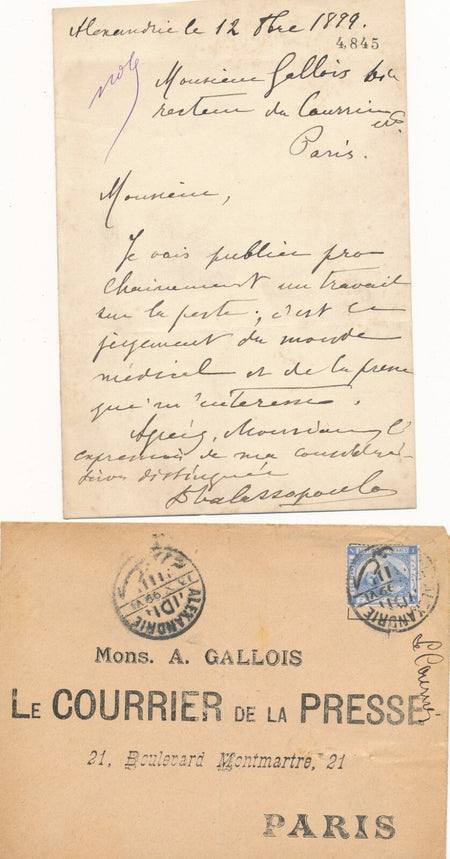 Alexandrie le 12 8bre 1899.
4845
note
Monsieur Gallois Di
recteur du Courrier
etc.
Paris.
Monsieur,
Je vais publier pro
chainement un travail
sur la peste; c'est le
jugement du monde
médical et de la presse
qui m'intéresse.
Agréez, Monsieur, l'
expression de ma considéra-
tion distinguée
ALEXANDRIE
ALEXANDRIE
Le Courrier
Mons. A. GALLOIS
LE COURRIER DE LA PRESSE
21, Boulevard Montmartre, 21
PARIS